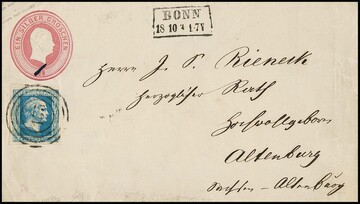 EIN SILBER GROSCHEN
BONN
18 10 1-7V
Herrn J. S. Rieneck
Herzoglicher Rath
Hochwohlgeboren
Altenburg
Sachsen-Altenburg